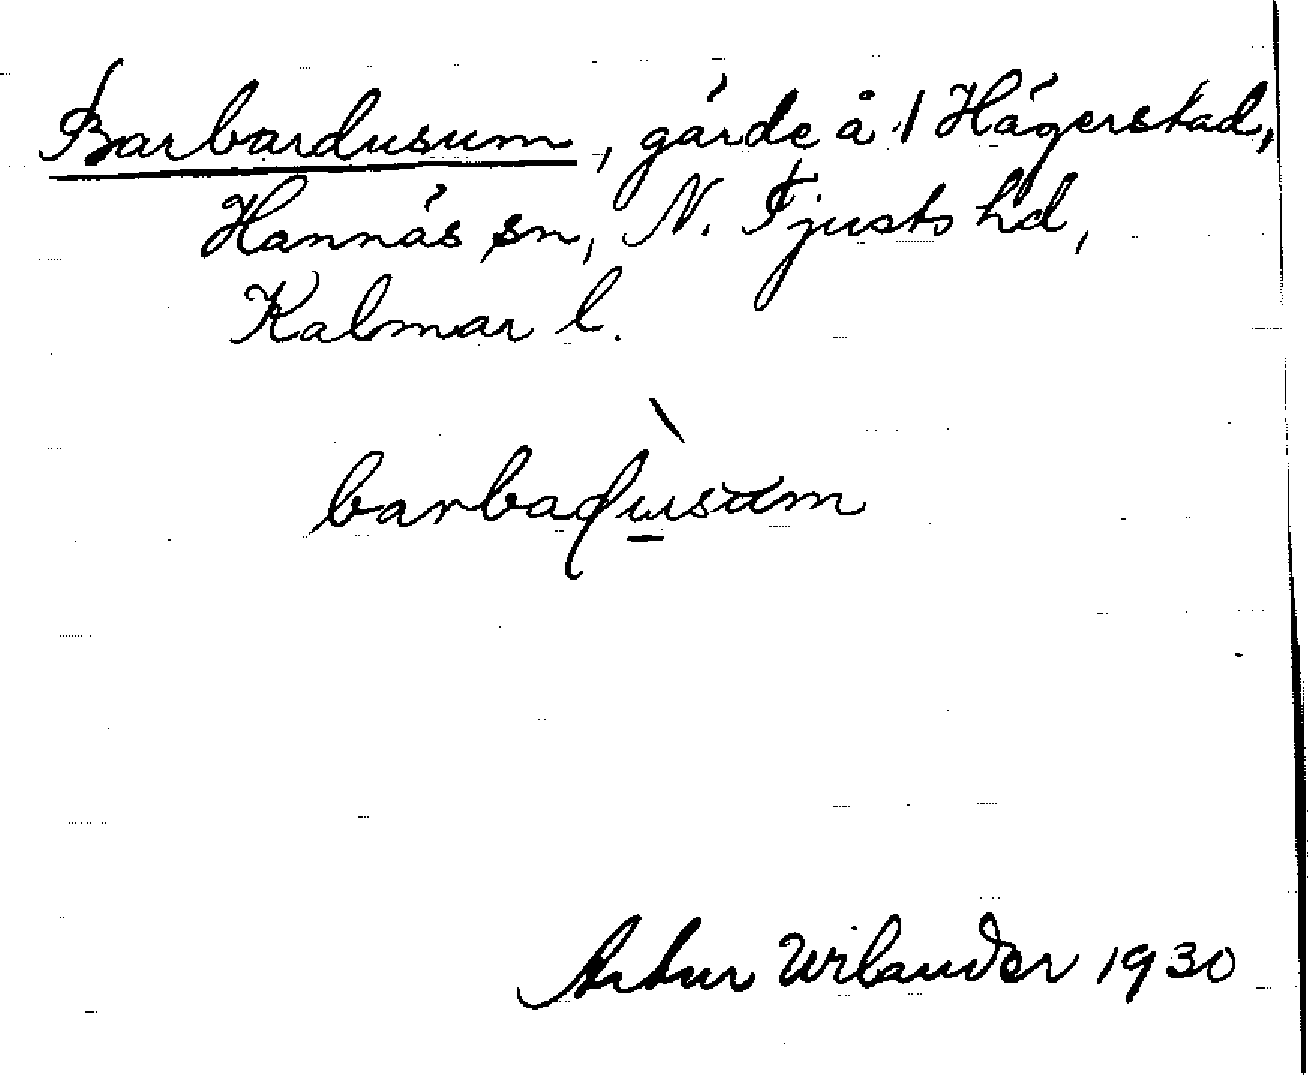 Barbardusum, gärde å 1 Hägerstad,
Hannäs sn, N. Tjusts hd,
Kalmar l.
barbaɖùsum
Artur Wilander 1930